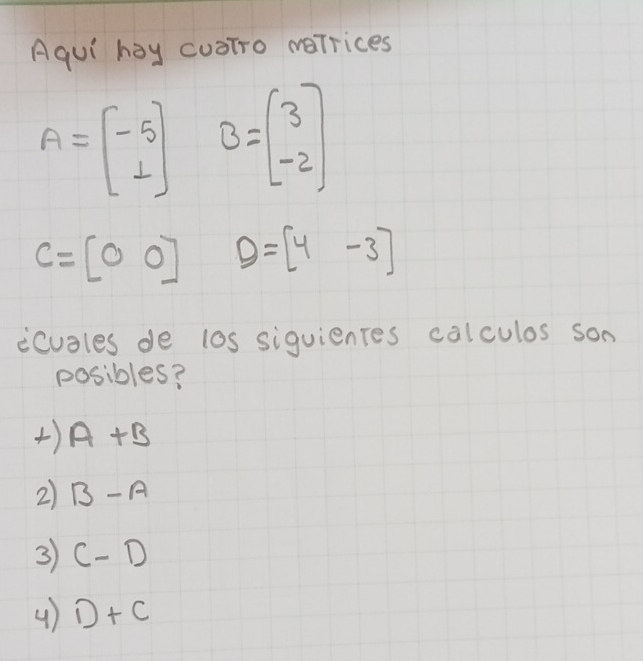 Aquí hay cuatro matrices
A = [-5 1] B = [3 -2]
C = [0 0] D = [4 -3]
¿Cuales de los siguientes calculos son
posibles?
1) A + B
2) B - A
3) C - D
4) D + C